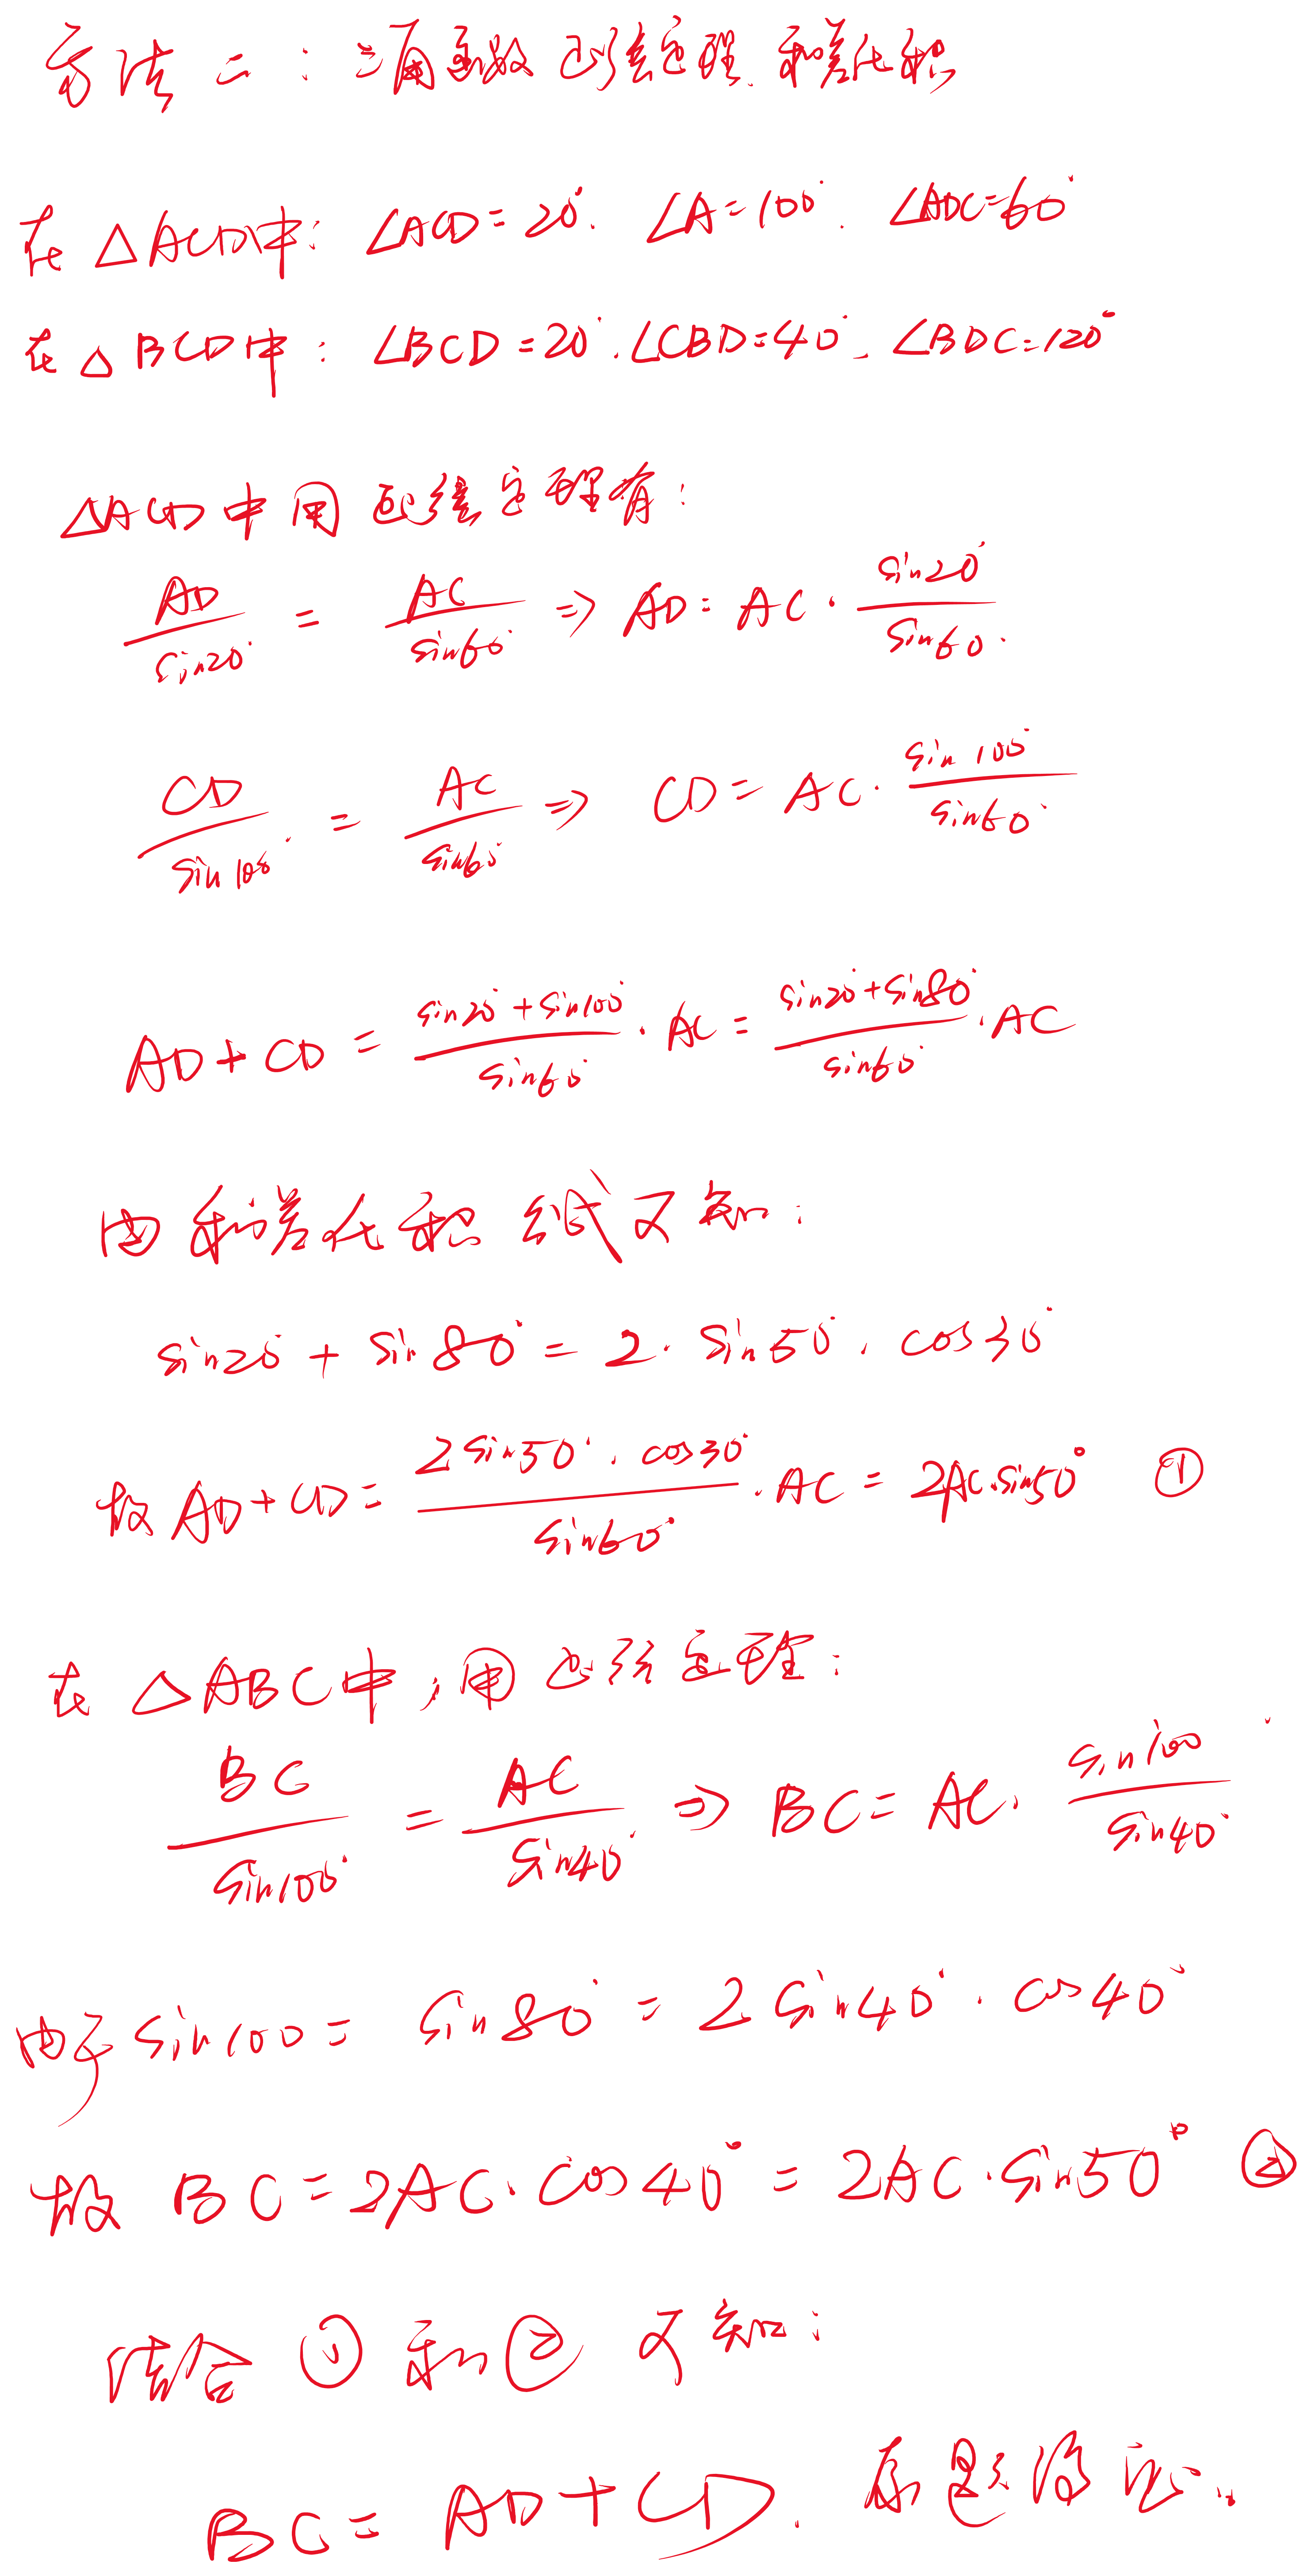 方法二：三角函数 正弦定理. 和差化积
在△ACD中：∠ACD=20°. ∠A=100°. ∠ADC=60°
在△BCD中：∠BCD=20°.∠CBD=40°. ∠BDC=120°
△ACD中用正弦定理有：
AD/sin20° = AC/sin60° ⇒ AD=AC·sin20°/sin60°
CD/sin100° = AC/sin60° ⇒ CD=AC·sin100°/sin60°
AD+CD=(sin20°+sin100°)/sin60°·AC=(sin20°+sin80°)/sin60°·AC
由和差化积公式可知：
sin20°+sin80°=2·sin50°·cos30°
故AD+CD=2sin50°·cos30°/sin60°·AC=2AC·sin50° ①
在△ABC中，用正弦定理：
BC/sin100° = AC/sin40° ⇒ BC=AC·sin100°/sin40°
由于sin100=sin80°=2sin40°·cos40°
故BC=2AC·cos40°=2AC·sin50° ②
结合①和②可知：
BC=AD+CD. 原题得证..